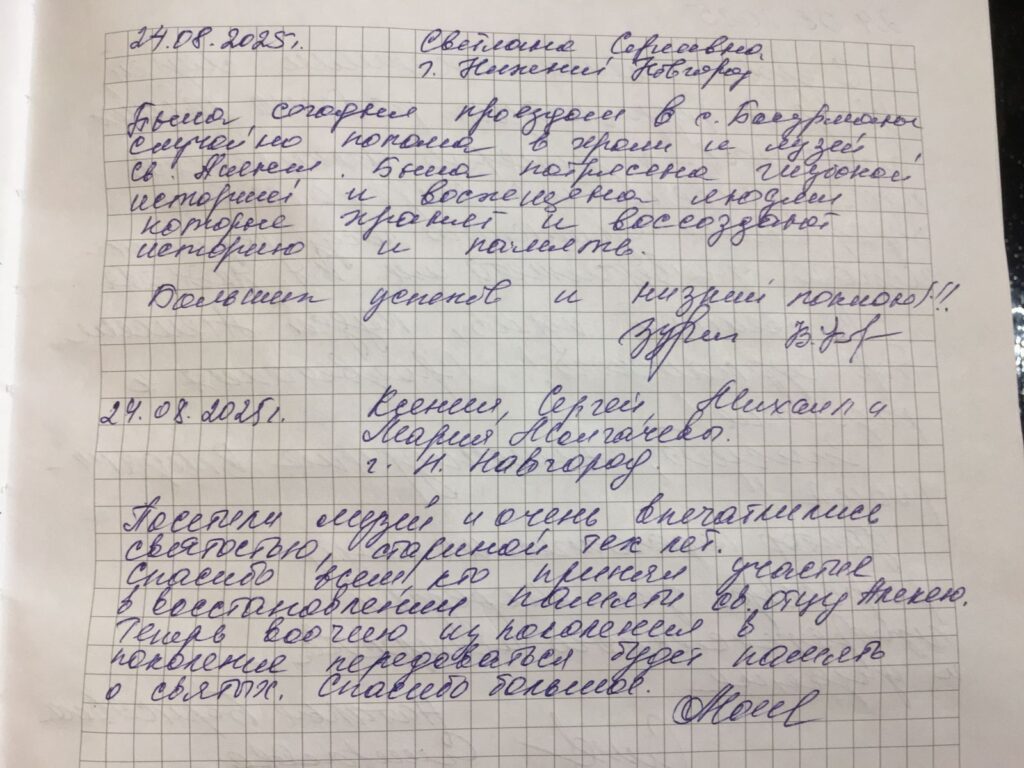 24.08.2025г. Светлана Сергеевна
г. Нижний Новгород
Была сегодня проездом в с. Бахурманы
случайно попала в храм и музей
св. Алексия. Была потрясена глубокой
историей и восхищена людьми
которые хранят и воссоздают
историю и память.
Больших успехов и низкий поклон!!!
24.08.2025г. Ксения, Сергей, Михаил и
Мария Молгачевы.
г. Н. Новгород.
Посетили музей и очень впечатлились
святостью, стариной тех лет.
Спасибо всем, кто принял участие
в восстановлении памяти св. отцу Алексею.
Теперь воочию из поколения в
поколение передаваться будет память
о святых. Спасибо большое.